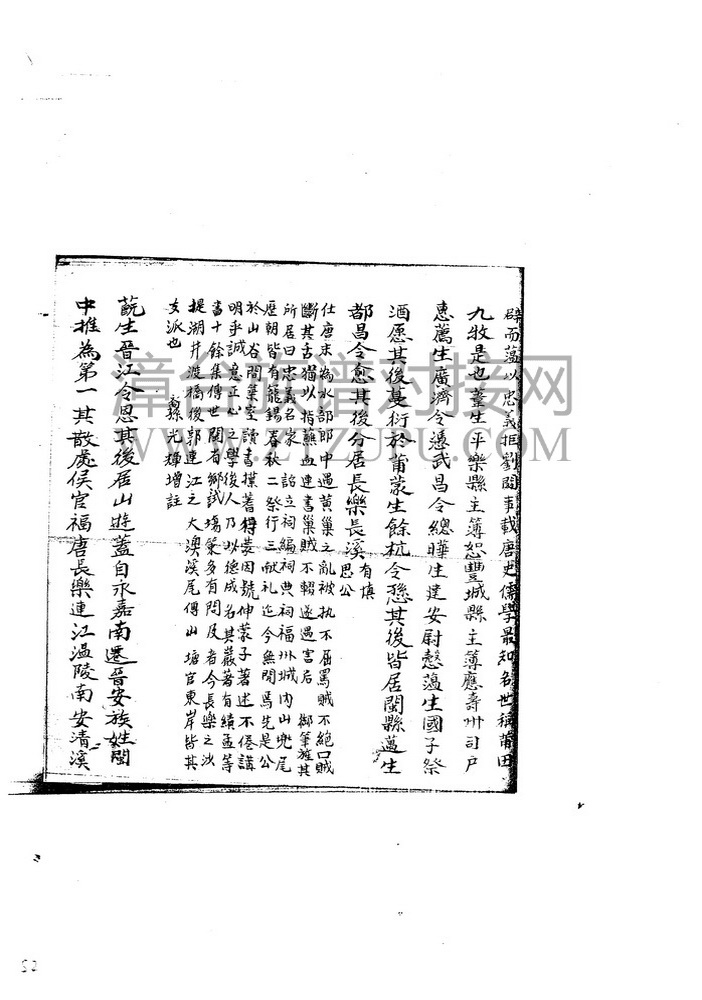 辟而蕰以忠義拒劉闢事載唐史儒學最知名世稱莆田
九牧是也薹生平樂縣主簿恕豐城縣主簿應壽州司戶
惠薦生廣濟令慿武昌令總曄生建安尉慤蕰生國子祭
酒愿其後蔓衍於莆蒙生餘杭令愻其後皆居閩縣邁生
都昌令愈其後分居長樂長溪有慎思公
仕唐末為水部郎中遇黃巢之亂被执不屈罵賊不絕口賊
斷其舌猶以指蘸血連書巢賊不輟遂遇害后 御筆旌其
所居曰忠義名家 詔立祠編祠典祠福州城內山兜尾
歷朝皆有龍錫春秋二祭行三献礼迄今無間焉先是公
於山谷間巢空讀書摸著得裝因號伸蒙子著述不倦講
明乎誠意正心之學後人乃以德成名其巖著有續孟等
書十餘集傳世閱有鄉試塲策多有問及者今長樂之沙
提湖井渡橋後郭連江之大澳溪尾傅山塘官東岸皆其
支派也 裔孫光輝增註
蓻生晉江令恩其後居山遊蓋自永嘉南遷晉安族姓閩
中推為第一其散處侯官福唐長樂連江溫陵南安清溪
漳台族谱对接网
WWW.ZTZUPU.COM
52